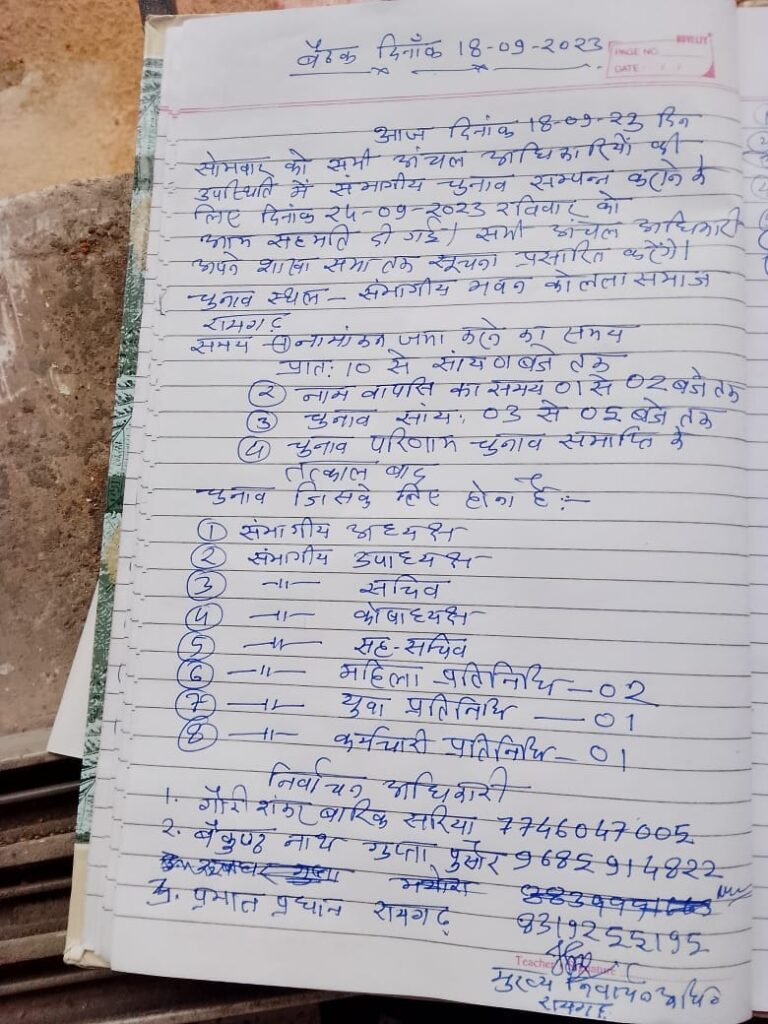 बैठक दिनाँक 18-09-2023
NOVELTY
PAGE NO.
DATE: / /
आज दिनांक 18-09-23 दिन
सोमवार को सभी अंचल अधिकारियों की
उपस्थिति में संभागीय चुनाव सम्पन्न कराने के
लिए दिनांक 24-09-2023 रविवार को
आम सहमति दी गई। सभी अंचल अधिकारी
अपने शाखा सभा तक सूचना प्रसारित करेंगे।
चुनाव स्थल - संभागीय भवन कोलता समाज
रायगढ़
समय - ① नामांकन जमा करने का समय
प्रात: 10 से सांय 01 बजे तक
② नाम वापसि का समय 01 से 02 बजे तक
③ चुनाव सांय: 03 से 05 बजे तक
④ चुनाव परिणाम चुनाव समाप्ति के
तत्काल बाद
चुनाव जिसके लिए होना है :-
① संभागीय अध्यक्ष
② संभागीय उपाध्यक्ष
③ -"- सचिव
④ -"- कोषाध्यक्ष
⑤ -"- सह-सचिव
⑥ -"- महिला प्रतिनिधि - 02
⑦ -"- युवा प्रतिनिधि - 01
⑧ -"- कर्मचारी प्रतिनिधि - 01
निर्वाचन अधिकारी
1. गौरी शंकर बारिक सरिया 7746047005
2. बैकुण्ठ नाथ गुप्ता पुसौर 9685914822
3. प्रभात प्रधान रायगढ़ 8319255195
Teacher's Signature
मुख्य निर्वाचन अधि०
रायगढ़